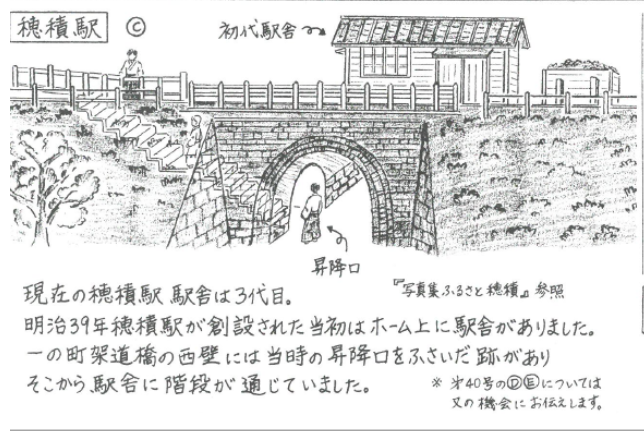 穂積駅 Ⓒ
初代駅舎
昇降口
『写真集ふるさと穂積』参照
現在の穂積駅 駅舎は3代目。
明治39年穂積駅が創設された当初はホーム上に駅舎がありました。
一の町架道橋の西壁には当時の昇降口をふさいだ跡があり
そこから駅舎に階段が通じていました。
※ 第40号のⒹⒺについては
又の機会にお伝えします。